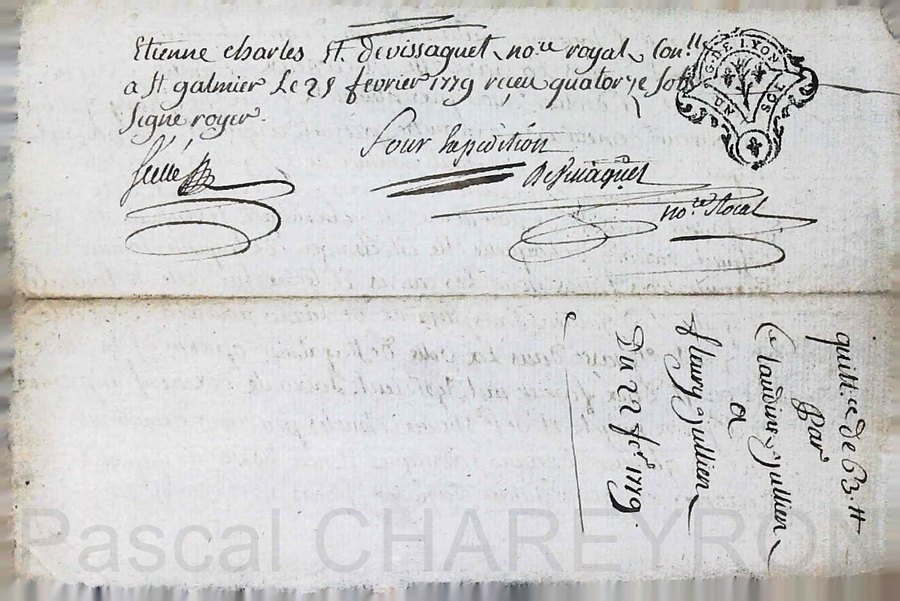 Etienne Charles St. devissaguet no.re royal Con.lle
a St. galmier Le 25 fevrier 1779 reçeu quatorze sols
Signé royer.
Scellé
Pour Expedition
devissaguet
no.re Royal
G. DE LYON
UN SOL
quitt.ce de 63.tt
Par
Claudine Jullien
a
fleury Jullien
Du 22 fer. 1779.
Pascal CHAREYRON